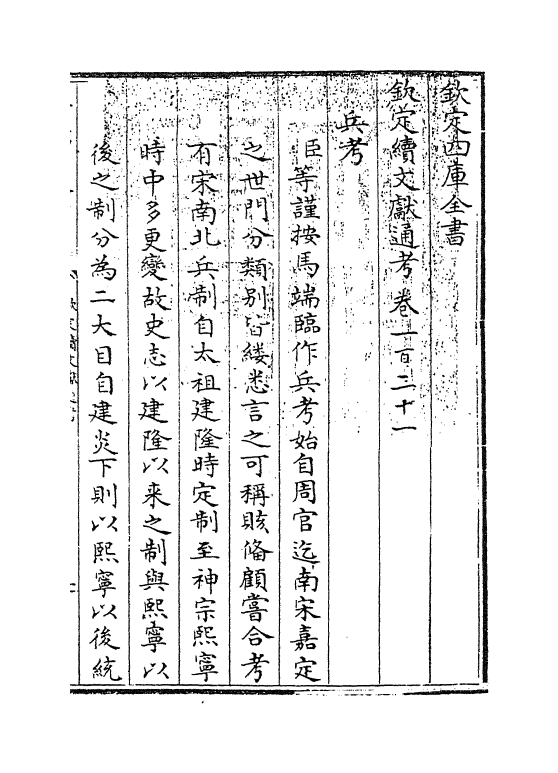 欽定四庫全書
欽定續文獻通考卷一百二十一
兵考
臣等謹按馬端臨作兵考始自周官迄南宋嘉定
之世門分類別皆縷悉言之可稱賅備顧嘗合考
有宋南北兵制自太祖建隆時定制至神宗熙寧
時中多更變故史志以建隆以来之制與熙寧以
後之制分為二大目自建炎下則以熙寧以後統